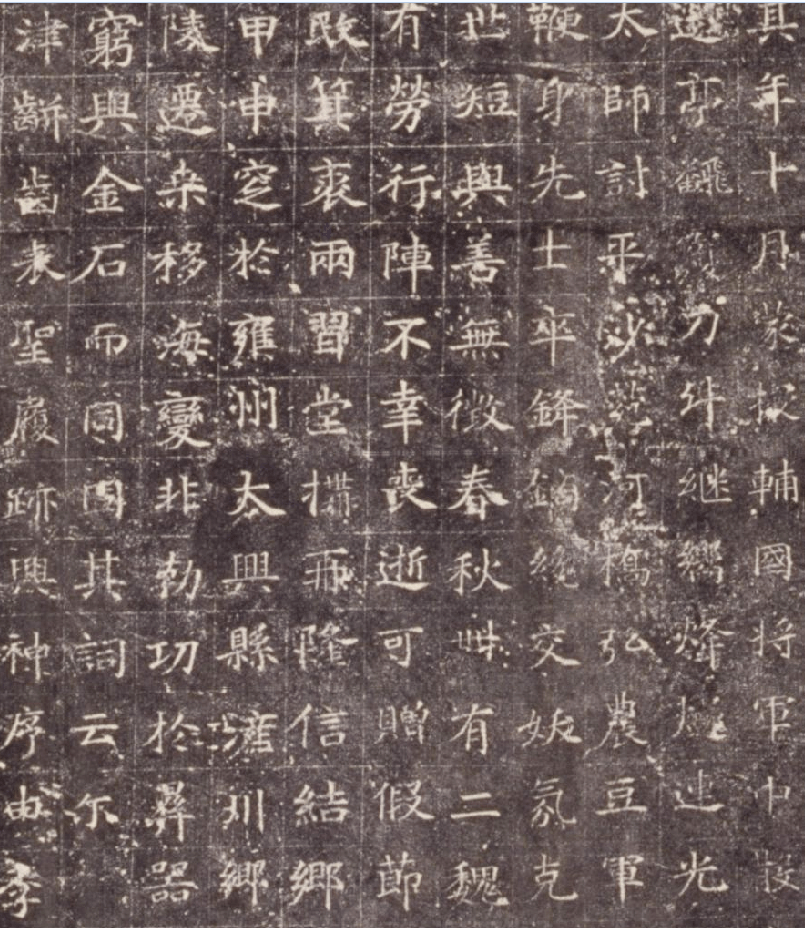 其年十月蒙授輔國將軍中
邊亭刀斗継響烽燧連光
太師討平沙苑河橋弘農豆軍
鞭身先士卒鋒鏑纔交妖氛克
世短與善無徵春秋卌有二魏
有勞行陣不幸喪逝可贈假節
敗箕裘兩習堂構再隆信結鄉
甲申窆於雍州太興縣滻川鄉
陵遷桒移海變非勒功於彝器
窮與金石而同固其詞云尔
津齗齒表聖履跡興神序由孝